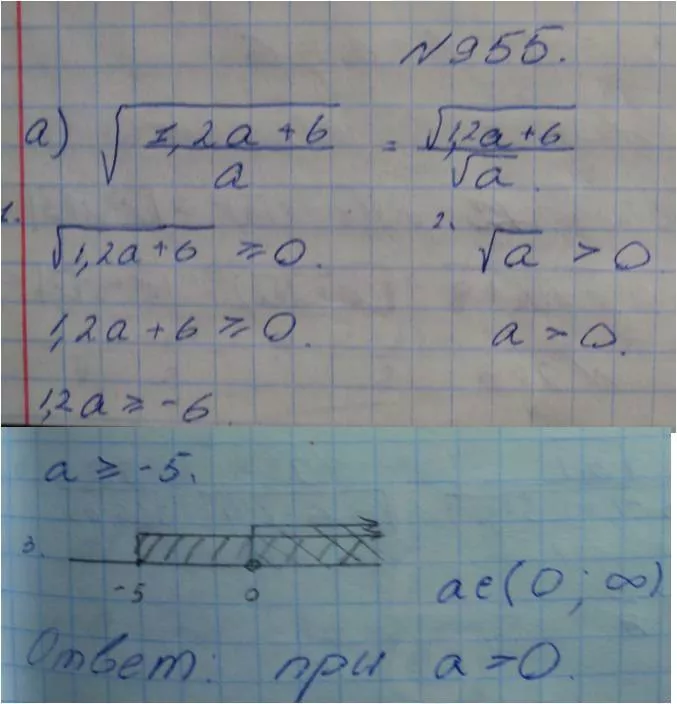 №955.
а) √((1,2a+6)/a) = √(1,2a+6)/√a.
1. √(1,2a+6) ≥ 0. 2. √a > 0
1,2a+6 ≥ 0. a > 0.
1,2a ≥ -6
a ≥ -5.
3. -5 0 a∈(0; ∞)
Ответ: при a > 0.